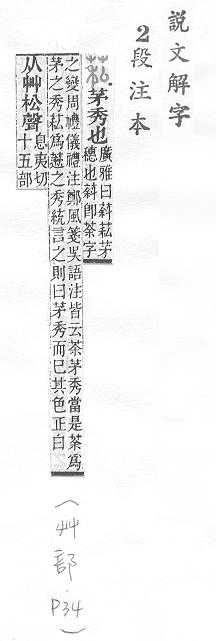 説文解字
2段注本
茅秀也
廣雅曰 茅
穗也 即荼字
之變周禮儀禮注鄭風箋吳語注皆云荼茅秀當是荼爲
茅之秀 爲 之秀統言之則曰茅秀而已其色正白
从艸 聲
息夷切
十五部
(艸部 P34)